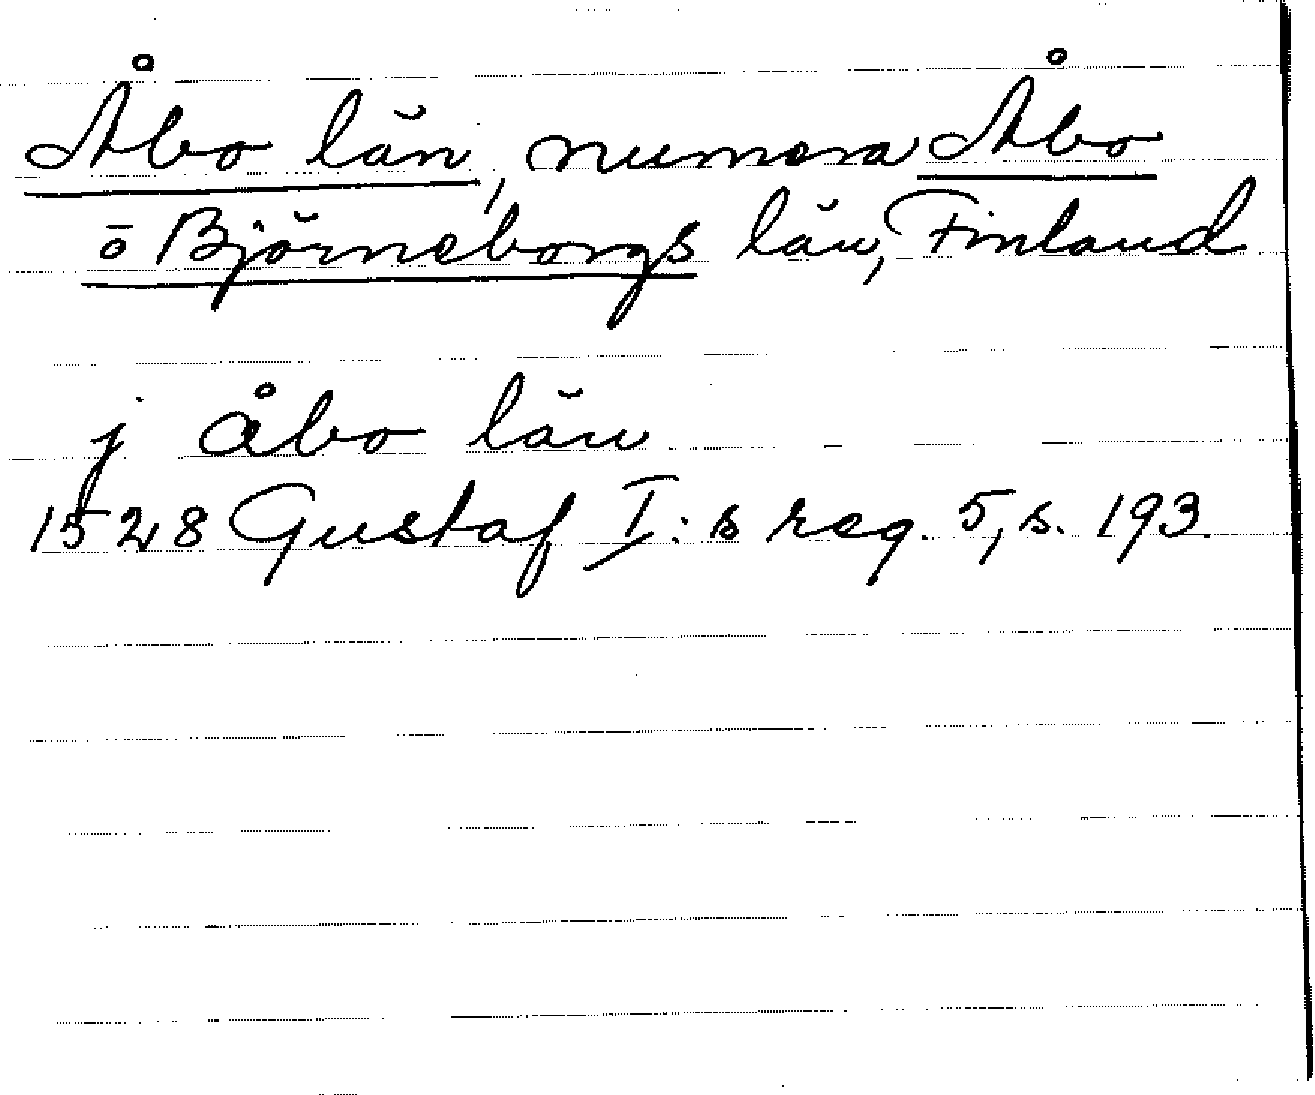 Åbo län, numera Åbo
o Björneborgs län, Finland
j åbo län
1528 Gustaf I:s reg. 5, s. 193.